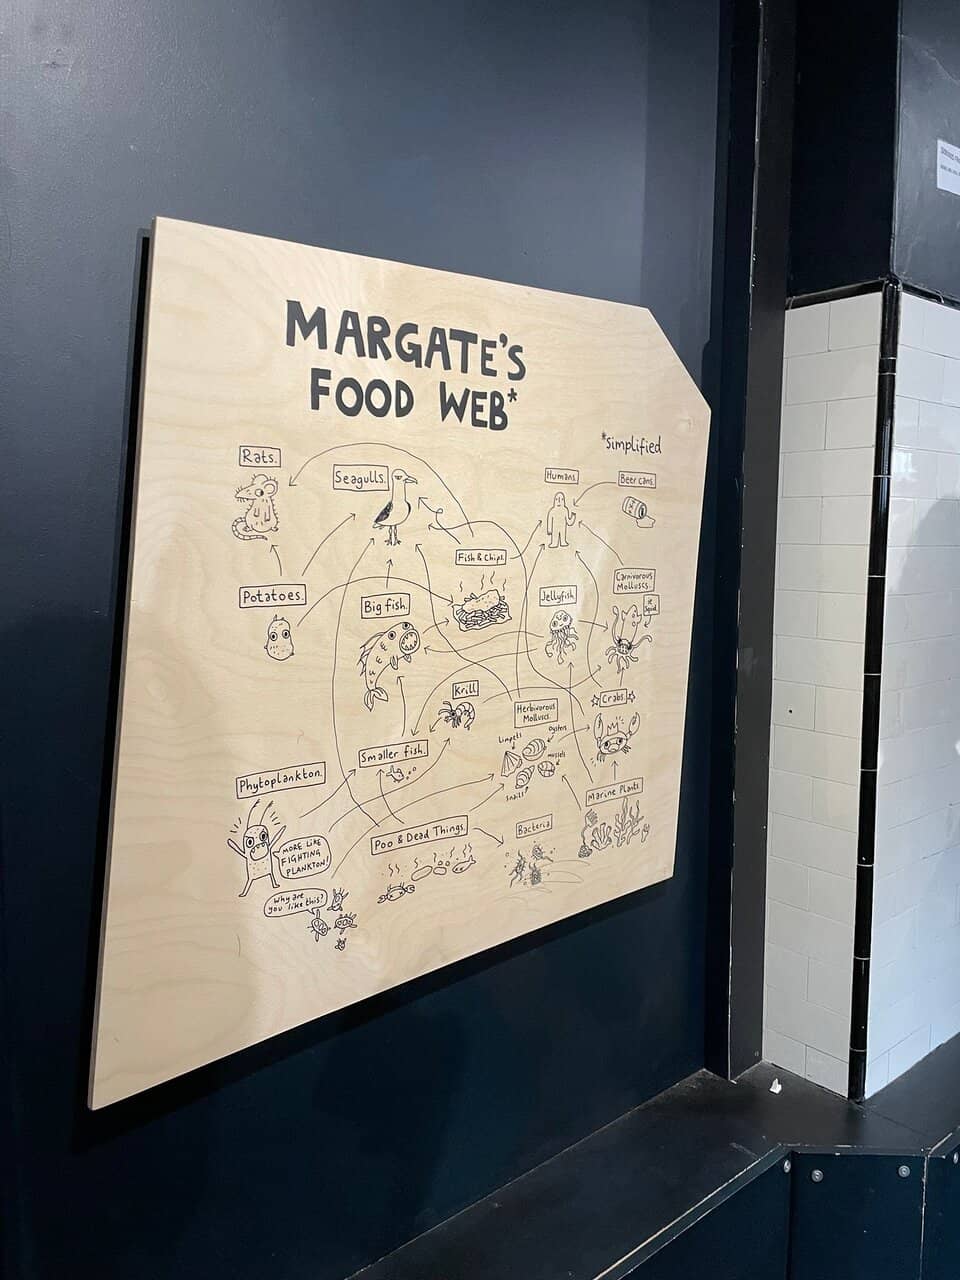 MARGATE'S
FOOD WEB*
*simplified
Rats.
Seagulls.
Humans.
Beer cans.
Fish & Chips.
Potatoes.
Big fish.
Jellyfish.
Carnivorous
Molluscs.
ie
Squid
Krill
Herbivorous
Molluscs.
☆Crabs.☆
limpets
oysters
mussels
snails
Smaller fish.
Phytoplankton.
Marine Plants.
MORE LIKE
FIGHTING
PLANKTON!
Poo & Dead Things.
Bacteria
Why are
you like this?